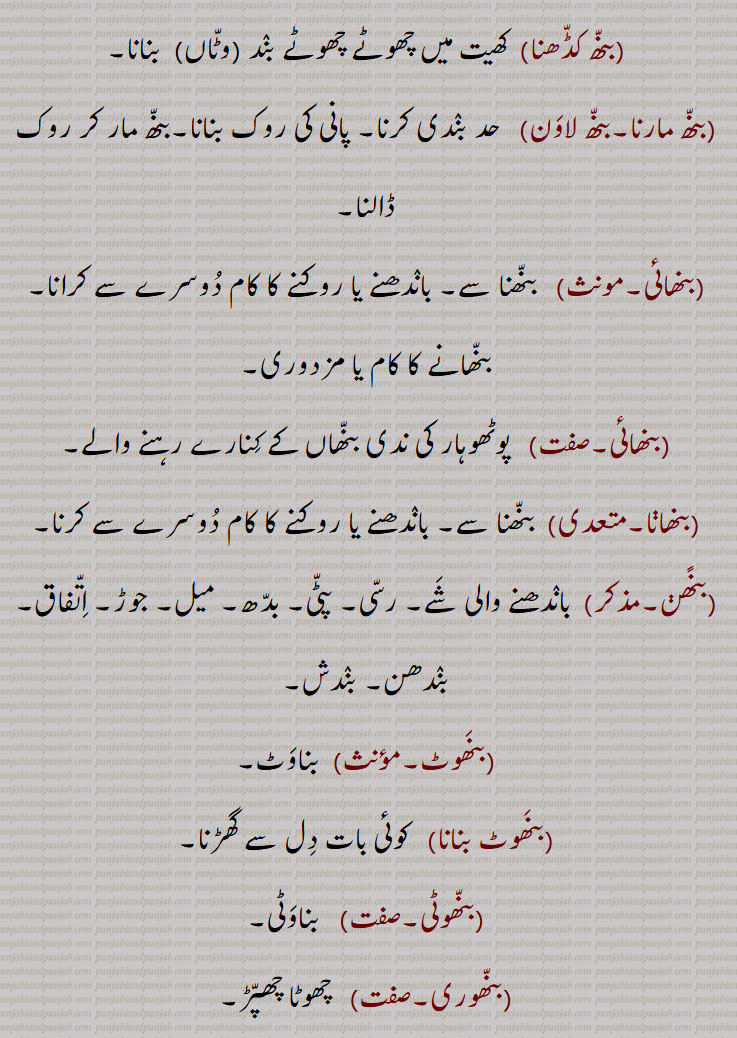 (بنھّ کڈّھنا) کھیت میں چھوٹے چھوٹے بنْد (وٹّاں) بنانا۔
(بنھّ مارنا۔بنھّ لاوَن) حد بنْدی کرنا۔ پانی کی روک بنانا۔بنھّ مار کر روک
ڈالنا۔
(بنھائی۔مونث) بنھّنا سے۔ بانْدھنے یا روکنے کا کام دُوسرے سے کرانا۔
بنھّانے کا کام یا مزدوری۔
(بنھائی۔صفت) پوٹھوہار کی ندی بنھّاں کے کِنارے رہنے والے۔
(بنھانْا۔متعدی) بنھّنا سے۔ بانْدھنے یا روکنے کا کام دُوسرے سے کرنا۔
(بنھّن۔مذکر) بانْدھنے والی شَے۔ رسّی۔ پٹّی۔ بدّھ۔ میل۔ جوڑ۔ اِتّفاق۔
بنْدھن۔ بنْدش۔
(بنَھوٹ۔مؤنث) بناوَٹ۔
(بنَھوٹ بنانا) کوئی بات دِل سے گھَڑنا۔
(بنھّوٹی۔صفت) بناوَٹی۔
(بنھّوری۔صفت) چھوٹا چھپّڑ۔